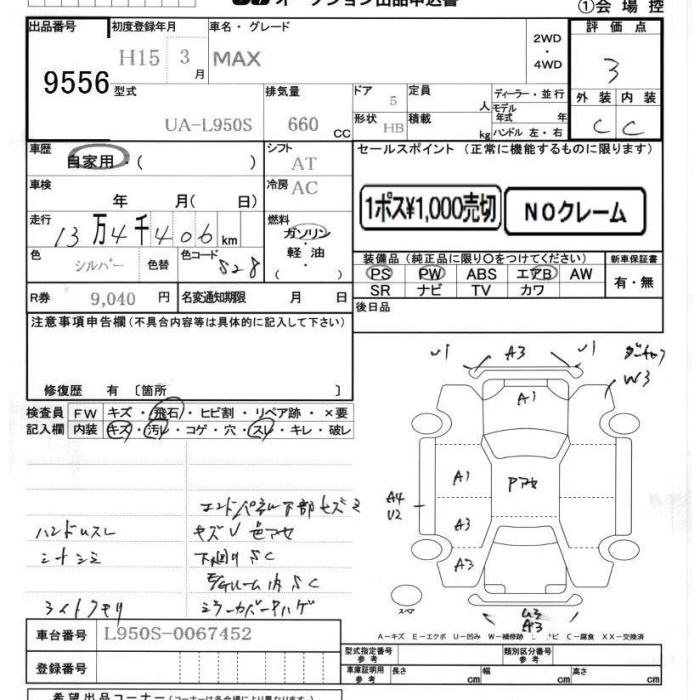 オークション出品申込書
①会場控
出品番号 初度登録年月 車名・グレード 評価点
9556 H15 3月 MAX 2WD・4WD 3
型式 排気量 ドア 定員 ディーラー・並行 外装 内装
UA-L950S 660CC 5 人 モデル年式 年 C C
形状 積載
HB kg ハンドル 左・右
車歴 シフト セールスポイント (正常に機能するものに限ります)
自家用・( ) AT
車検 冷房
年 月( 日) AC
1ポス¥1,000売切 NOクレーム
走行 燃料
13万4千406km ガソリン・軽油・( )
色 色替 色コード
シルバー S28
装備品 (純正品に限り○をつけてください) 新車保証書
PS PW ABS エアB AW 有・無
SR ナビ TV カワ
R券 9,040円 名変通知期限 月 日 後日品
注意事項申告欄(不具合内容等は具体的に記入して下さい)
修復歴 有 〔箇所 〕
検査員記入欄 FW キズ・飛石・ヒビ割・リペア跡・×要
内装 キズ・汚レ・コゲ・穴・スレ・キレ・破レ
ハンドルスレ
シートシミ
ライトクモリ
キズU 色アセ
下廻りSC
フレーム内SC
ミラーカバーハゲ
U1 A3 U1
W3
A1
A1 Pアセ
A4
U2
A3
A3
スペア
A3
A-キズ E-エクボ U-凹み W-補修跡 C-腐食 XX-交換済
車台番号 L950S-0067452
登録番号
型式指定番号 参考 類別区分番号 参考
車庫証明用 参考 長さ cm 幅 cm 高さ cm
希望出品コーナー